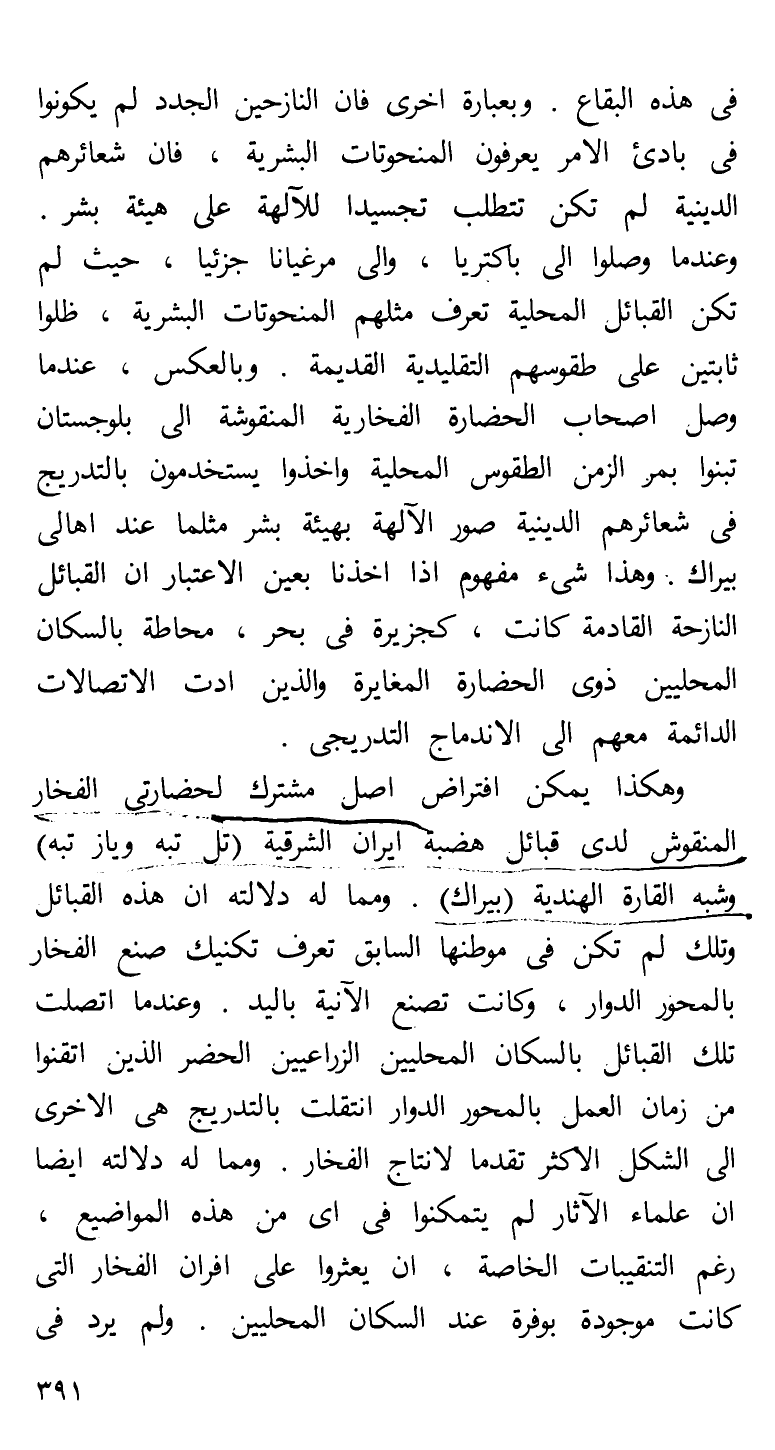 فى هذه البقاع . وبعبارة اخرى فان النازحين الجدد لم يكونوا
فى بادئ الامر يعرفون المنحوتات البشرية ، فان شعائرهم
الدينية لم تكن تتطلب تجسيدا للآلهة على هيئة بشر .
وعندما وصلوا الى باكتريا ، والى مرغيانا جزئيا ، حيث لم
تكن القبائل المحلية تعرف مثلهم المنحوتات البشرية ، ظلوا
ثابتين على طقوسهم التقليدية القديمة . وبالعكس ، عندما
وصل اصحاب الحضارة الفخارية المنقوشة الى بلوجستان
تبنوا بمر الزمن الطقوس المحلية واخذوا يستخدمون بالتدريج
فى شعائرهم الدينية صور الآلهة بهيئة بشر مثلما عند اهالى
بيراك . وهذا شىء مفهوم اذا اخذنا بعين الاعتبار ان القبائل
النازحة القادمة كانت ، كجزيرة فى بحر ، محاطة بالسكان
المحليين ذوى الحضارة المغايرة والذين ادت الاتصالات
الدائمة معهم الى الاندماج التدريجى .
وهكذا يمكن افتراض اصل مشترك لحضارتى الفخار
المنقوش لدى قبائل هضبة ايران الشرقية (تل تبه وياز تبه)
وشبه القارة الهندية (بيراك) . ومما له دلالته ان هذه القبائل
وتلك لم تكن فى موطنها السابق تعرف تكنيك صنع الفخار
بالمحور الدوار ، وكانت تصنع الآنية باليد . وعندما اتصلت
تلك القبائل بالسكان المحليين الزراعيين الحضر الذين اتقنوا
من زمان العمل بالمحور الدوار انتقلت بالتدريج هى الاخرى
الى الشكل الاكثر تقدما لانتاج الفخار . ومما له دلالته ايضا
ان علماء الآثار لم يتمكنوا فى اى من هذه المواضيع ،
رغم التنقيبات الخاصة ، ان يعثروا على افران الفخار التى
كانت موجودة بوفرة عند السكان المحليين . ولم يرد فى
٣٩١